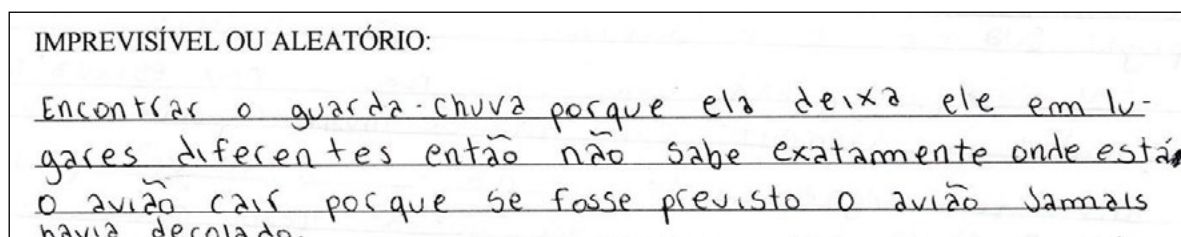 IMPREVISÍVEL OU ALEATÓRIO:
Encontrar o guarda-chuva porque ela deixa ele em lu-
gares diferentes então não sabe exatamente onde está
o avião cair porque se fosse previsto o avião jamais
havia decolado.